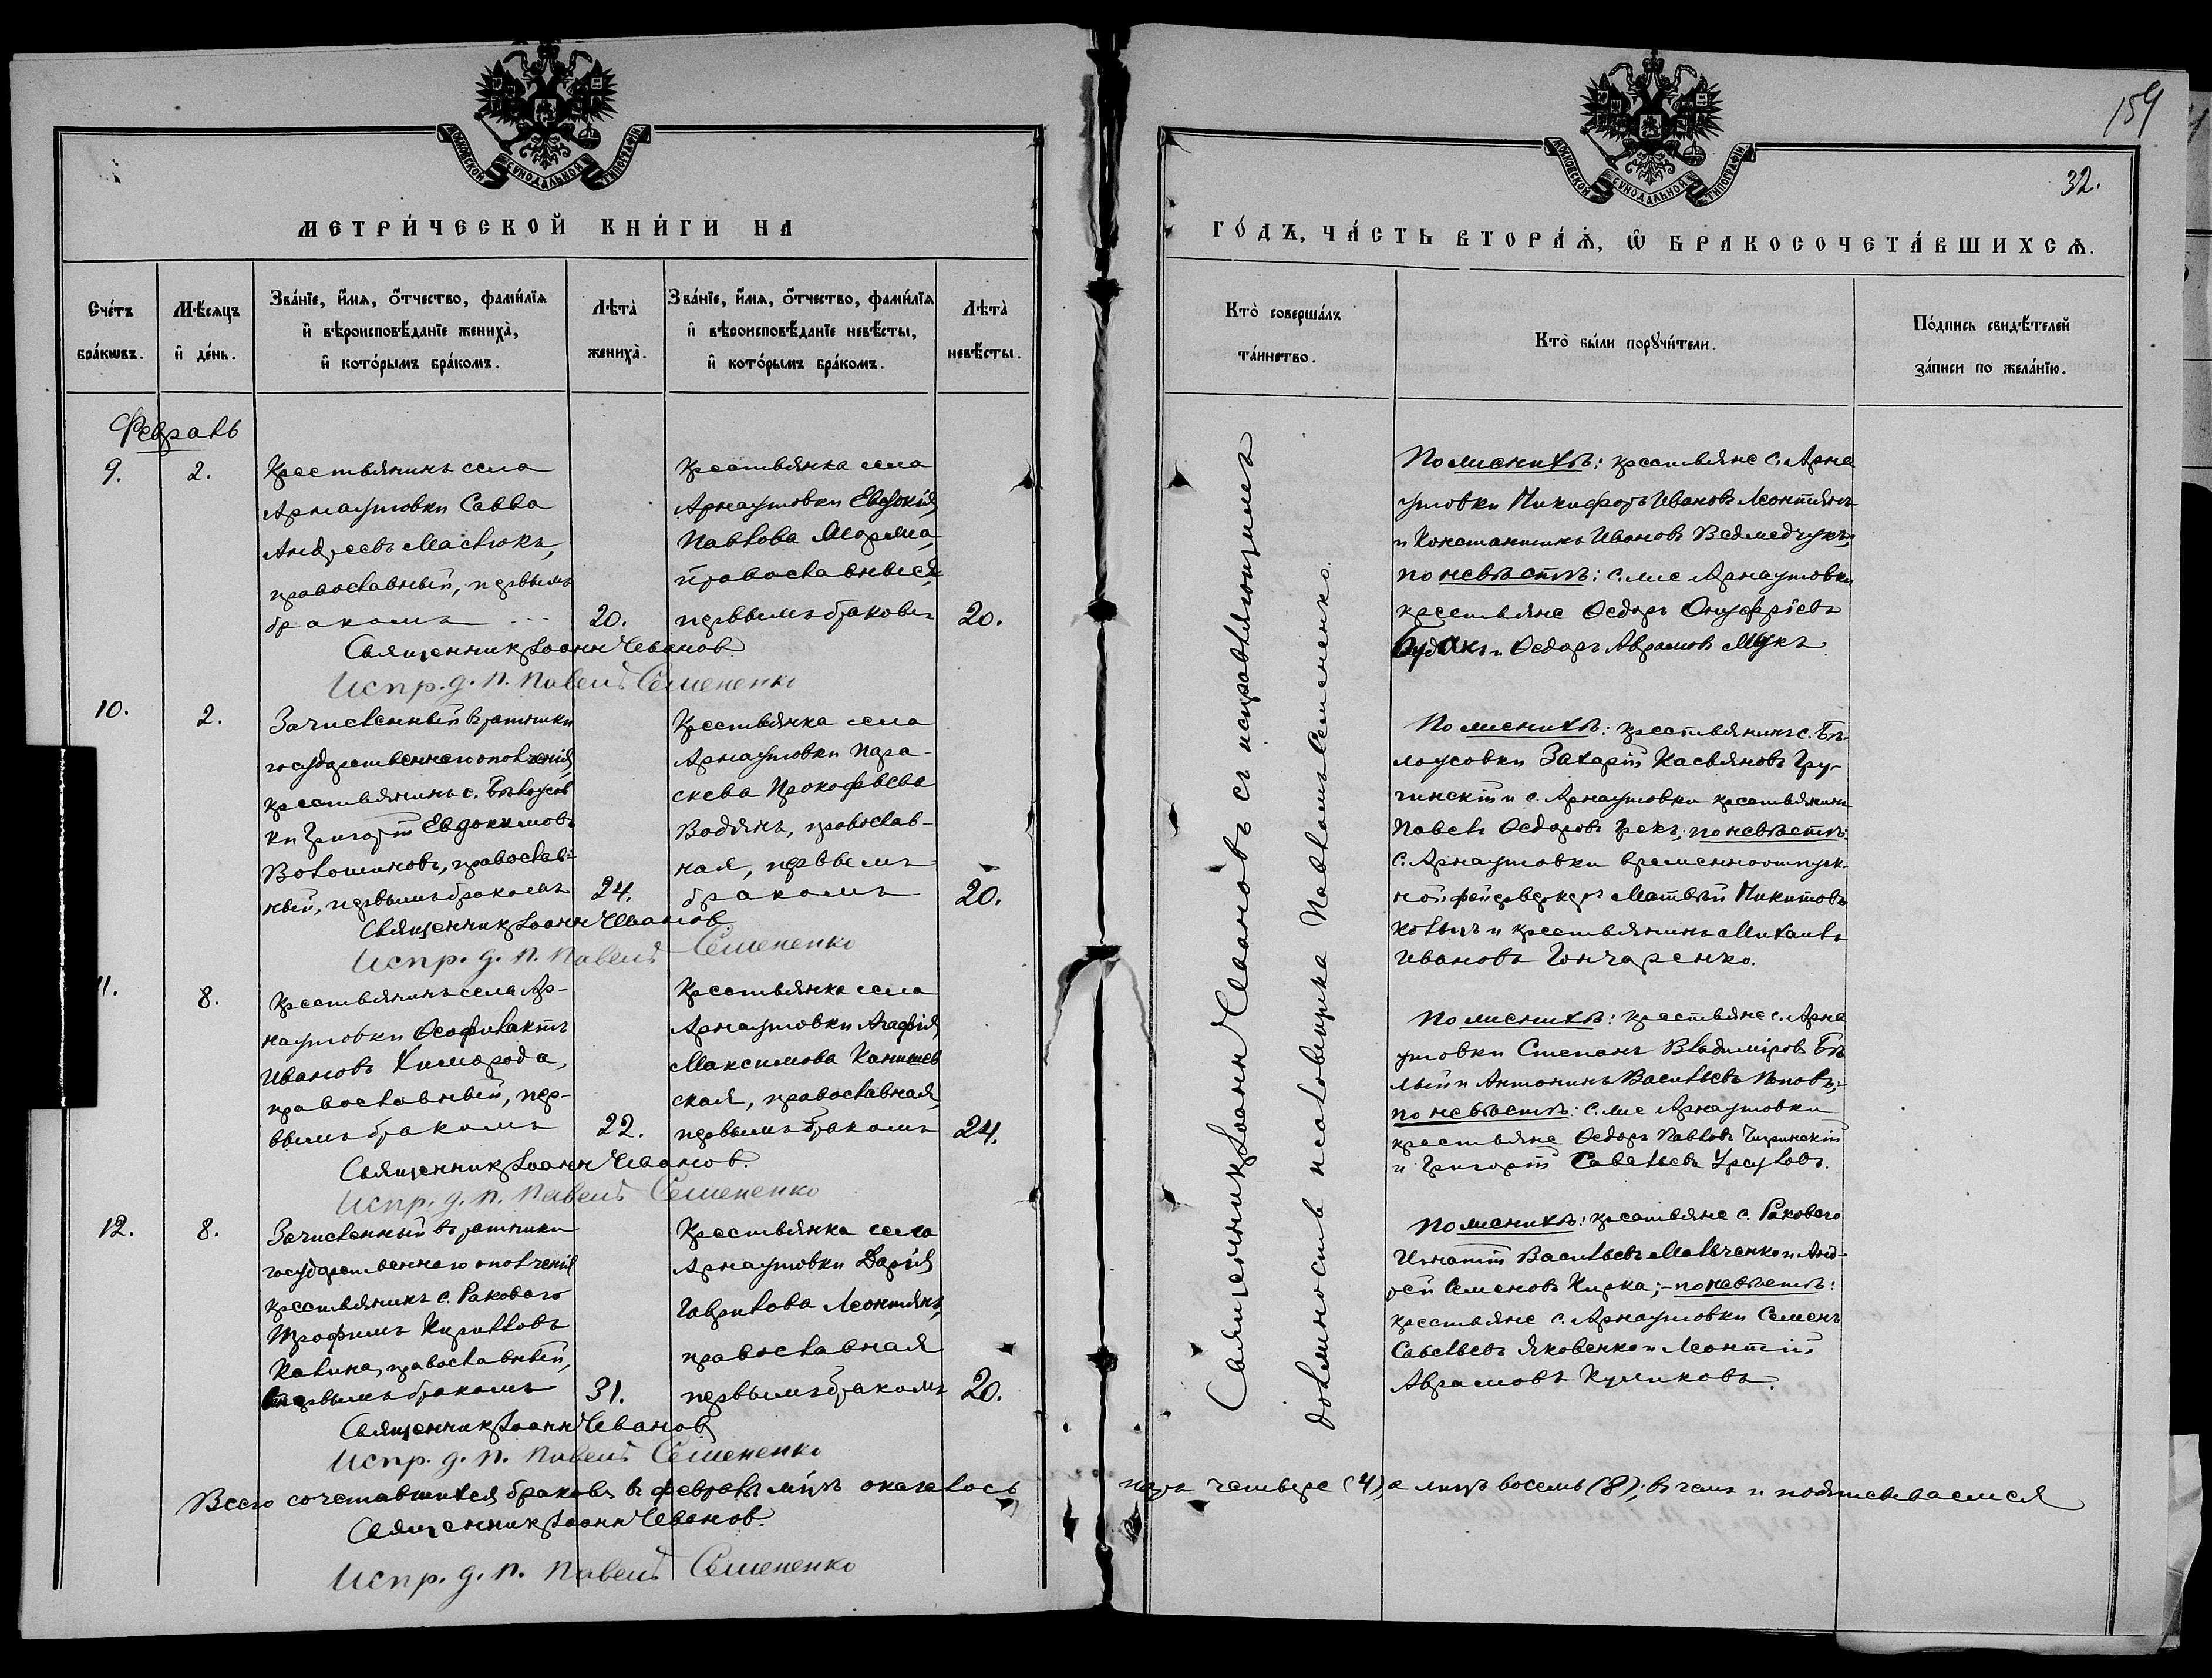 МОСКОВСКОЙ СѴНОДАЛЬНОЙ ТИПОГРАФІИ
МЕТРИ́ЧЕСКОЙ КНИ́ГИ НА
Сче́тъ бра́кѡвъ.
Мѣ́сяцъ и҆ де́нь.
Зва́нїе, и҆́мѧ, ѻ҆́тчество, фами́лїѧ
и҆ вѣроисповѣ́данїе жениха̀,
и҆ кото́рымъ бра́комъ.
Лѣта̀ жениха̀.
Зва́нїе, и҆́мѧ, ѻ҆́тчество, фами́лїѧ
и҆ вѣроисповѣ́данїе невѣ́сты,
и҆ кото́рымъ бра́комъ.
Лѣта̀ невѣ́сты.
Февраль
9.
2.
Крестьянинъ села
Арнаутовки Савва
Андреевъ Маслюкъ,
православный, первымъ
бракомъ
20.
Крестьянка села
Арнаутовки Евдокія
Павлова
православныя,
первымъ бракомъ
20.
Священникъ Іоаннъ Чеванов
Испр. д. п. Павелъ Семененко
10.
2.
Зачисленный въ ратники
государственнаго ополченія,
крестьянинъ с. Бѣлоусов
ки Григорій Евдокимовъ
Волошиновъ, православ-
ный, первымъ бракомъ
24.
Крестьянка села
Арнаутовки Пара-
скева Прокофьева
Водянъ, православ-
ная, первымъ
бракомъ
20.
Священникъ Іоаннъ Чеванов
Испр. д. п. Павелъ Семененко
11.
8.
Крестьянинъ села Ар-
наутовки Ѳеофилактъ
Ивановъ Химорода,
православный, пер-
вымъ бракомъ
22.
Крестьянка села
Арнаутовки Агафія
Максимова Канишев
ская, православная,
первымъ бракомъ
24.
Священникъ Іоаннъ Чеванов.
Испр. д. п. Павелъ Семененко
12.
8.
Зачисленный въ ратники
государственнаго ополченія
крестьянинъ с. Раковаго
Трофимъ Кирилловъ
Калина, православный,
первымъ бракомъ
31.
Крестьянка села
Арнаутовки Дарія
Гаврилова Леонтянъ,
православная
первымъ бракомъ
20.
Священникъ Іоаннъ Чеванов
Испр. д. п. Павелъ Семененко
Всего сочетавшихся браковъ въ февралѣ м-цѣ оказалось
Священникъ Іоаннъ Чеванов.
Испр. д. п. Павелъ Семененко
159
32.
МОСКОВСКОЙ СѴНОДАЛЬНОЙ ТИПОГРАФІИ
ГО́ДЪ, ЧА́СТЬ ВТОРА́Ѧ, Ѡ҆ БРАКОСОЧЕТА́ВШИХСѦ.
Кто̀ соверша́лъ
та́инство.
Кто̀ бы́ли порꙋчи́тели.
По́дпись свидѣ́телей
за́писи по жела́нїю.
Священникъ Іоаннъ Чеванов съ исправляющимъ
должность псаломщика Павломъ Семененко.
По женихѣ: крестьяне с. Арна
утовки Никифоръ Ивановъ Леонтянъ
и Константинъ Ивановъ Ведмедчукъ;
по невѣстѣ: с. Арнаутовки
крестьяне Ѳедоръ Онуфріевъ
Будакъ и Ѳедоръ Аврамовъ Мукъ
По женихѣ: крестьянинъ с. Бѣ-
лоусовки Захарій Касьяновъ Гру-
чинскій и с. Арнаутовки крестьянинъ
Павелъ Ѳедоровъ Грекъ; по невѣстѣ:
с. Арнаутовки временноотпуск-
ной фейерверкеръ Матвѣй Никитовъ
и крестьянинъ Михаилъ
Ивановъ Гончаренко.
По женихѣ: крестьяне с. Арна
утовки Степанъ Владиміровъ Бѣ
лый и Антонинъ Васильевъ Поповъ;
по невѣстѣ: с. Арнаутовки
крестьяне Ѳедоръ Павловъ Чигринскій
и Григорій Савельевъ Урсуловъ.
По женихѣ: крестьяне с. Раковаго
Игнатій Васильевъ Мальченко и Анд-
рей Семеновъ Кирка; - по невѣстѣ:
крестьяне с. Арнаутовки Семенъ
Савельевъ Яковенко и Леонтій
Аврамовъ Куликовъ.
паръ четыре (4), а лицъ восемь (8); въ чемъ и подписываемся